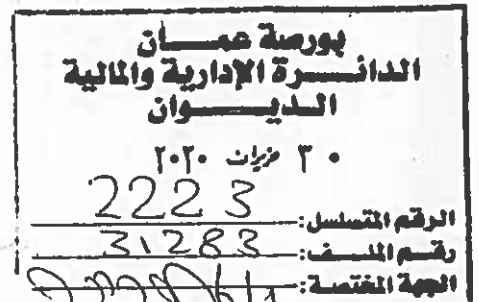 بورصة عمـــان
الدائـــرة الإدارية والمالية
الـديـــوان
٠٣ حزيران ٢٠٢٠
الرقم المتسلسل: 2223
رقم الملف: 31283
الجهة المختصة: